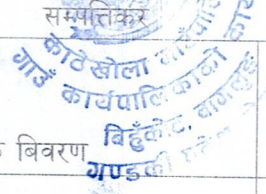 सम्पत्तिकर
काठेखोला गाउँपालि
गाउँ कार्यपालिकाको कार्य
बिहुँकोट, बागलुङ
गण्डकी प्रदेश
विवरण